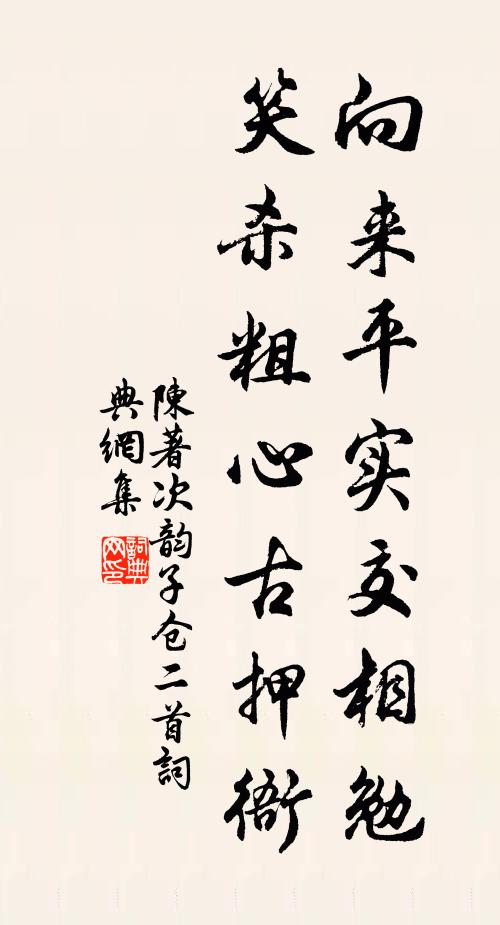 向来平实交相勉
笑杀粗心古押衙
陳著次韵子仓二首詞
典網集
詞典網印